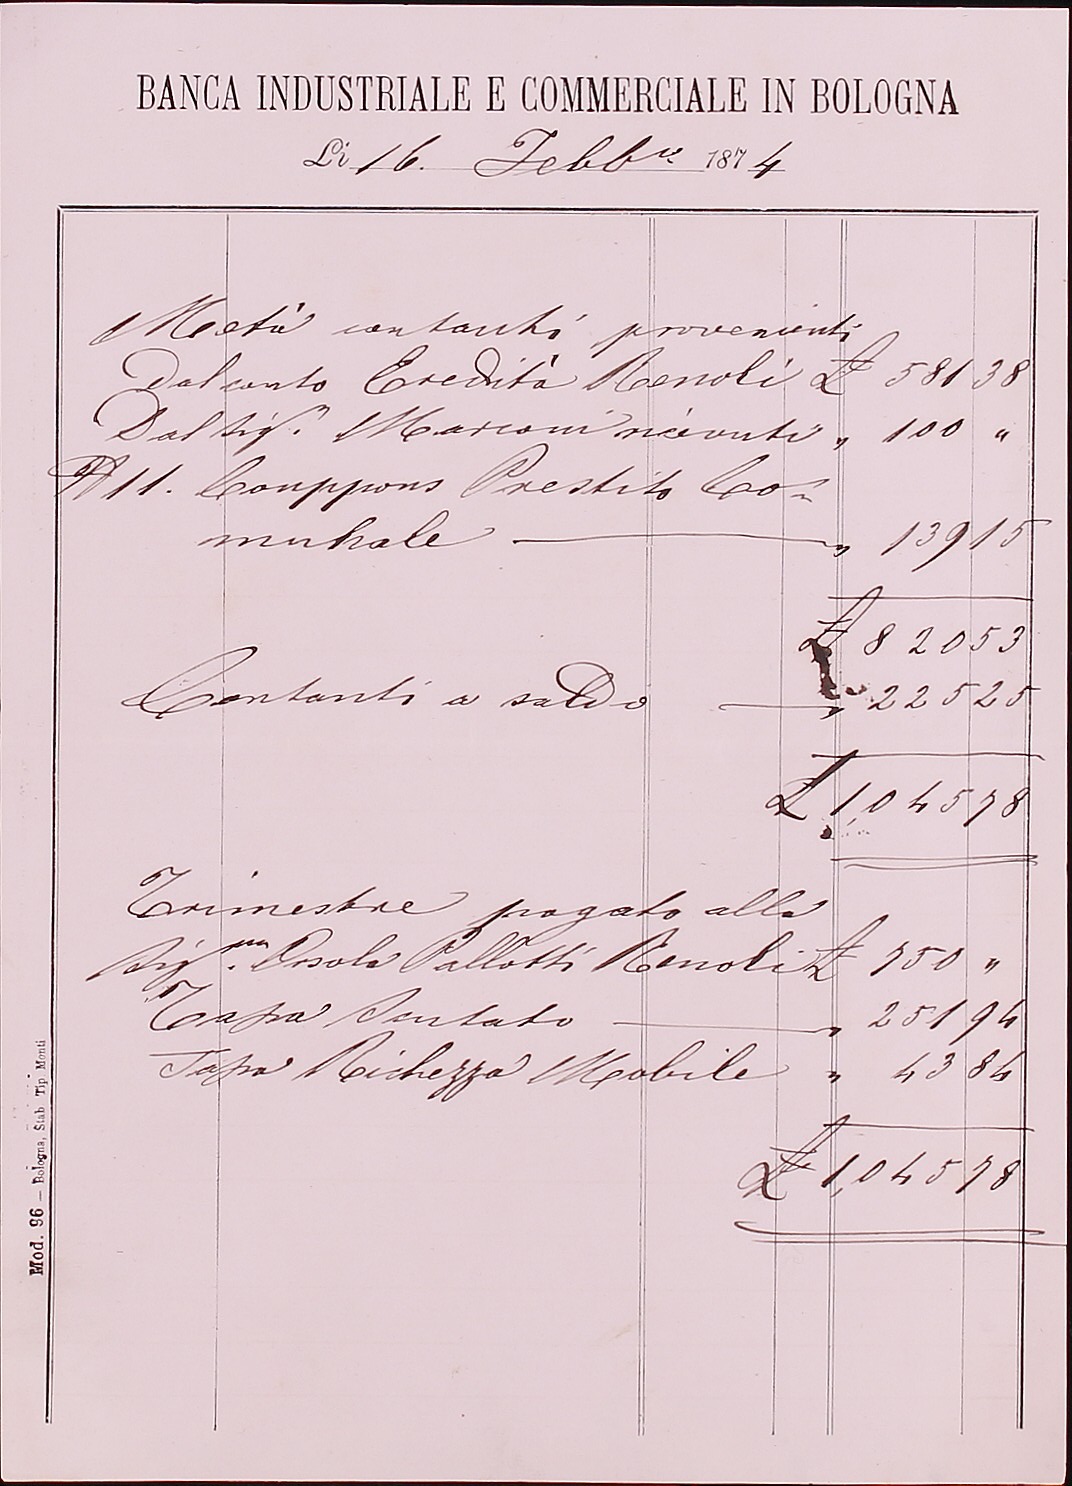 BANCA INDUSTRIALE E COMMERCIALE IN BOLOGNA
Li 16. Febb.ro 1874
Metà contanti provenienti
Dal conto Eredità Renoli £ 581 38
Dal Sig.r Marconi ricevuti " 100 "
N 11. Couppons Prestito Co=
munale " 139 15
£ 820 53
Contanti a saldo " 225 25
£ 1,045 78
Trimestre pagato alla
Sig.ra Orsola Pallotti Renoli £ 750 "
Tassa Sentato " 251 94
Tassa Richezza Mobile " 43 84
£ 1,045 78
Mod. 96 — Bologna, Stab Tip Monti